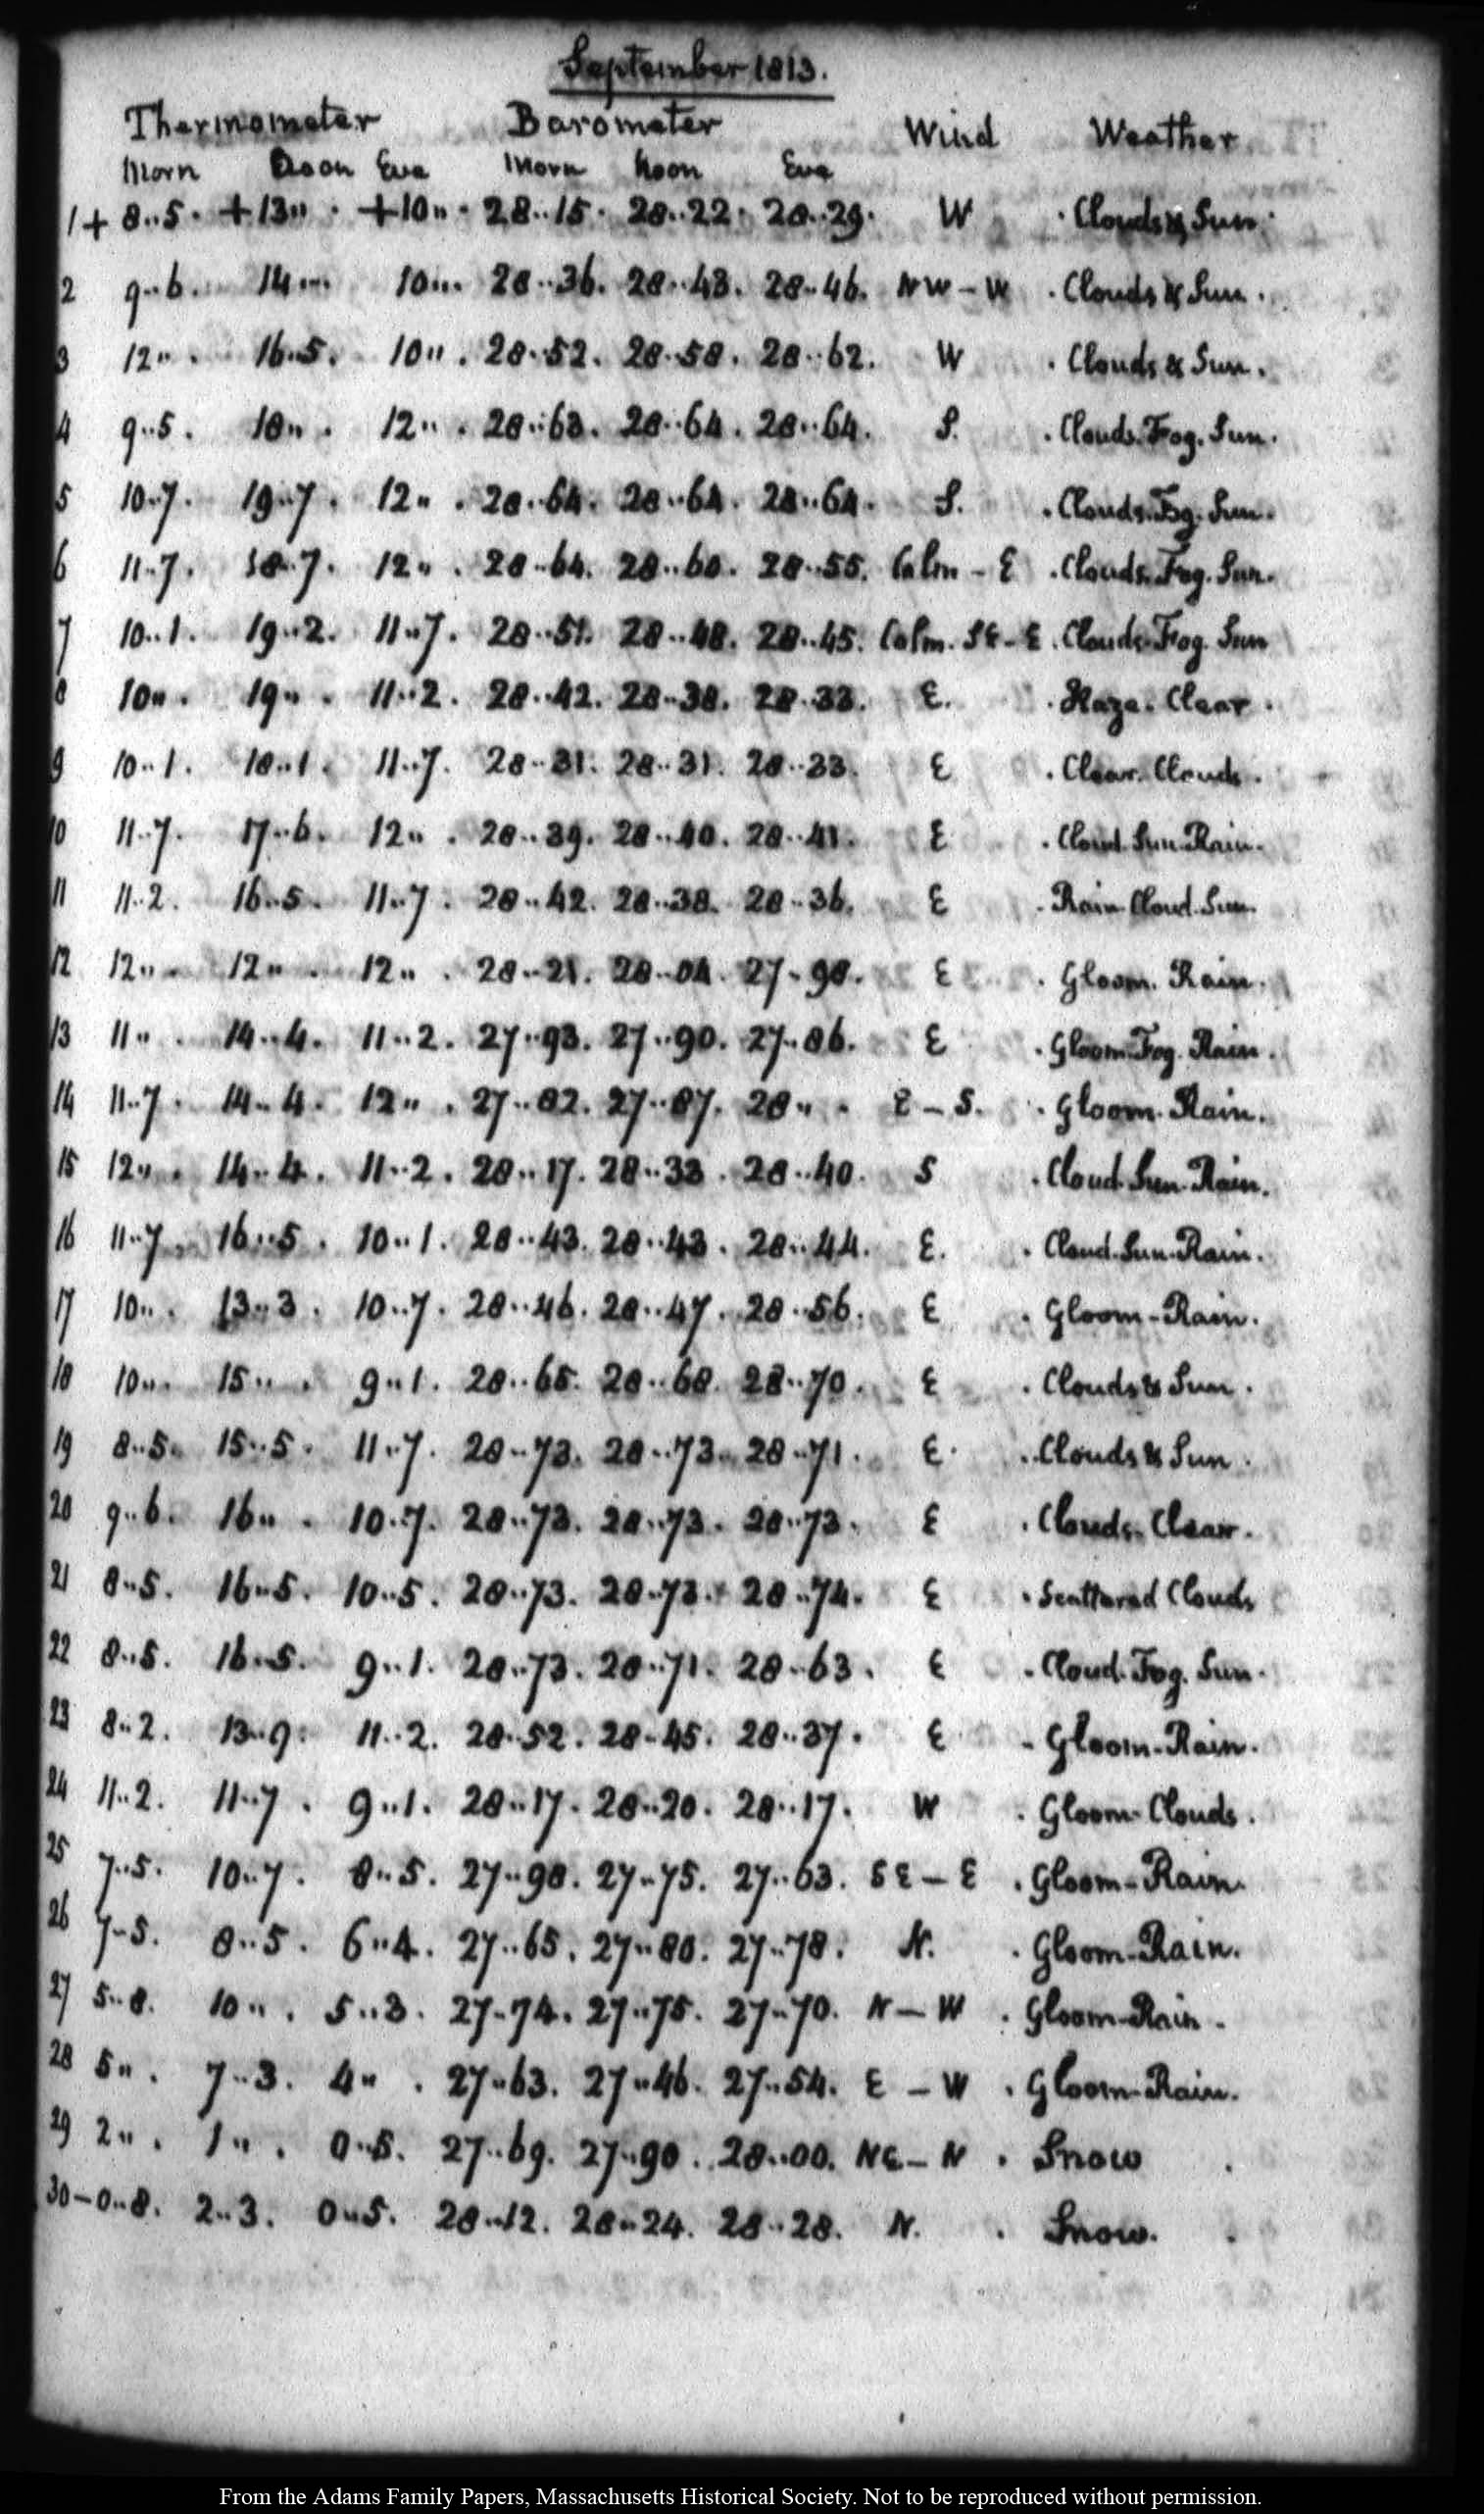 September 1813.
Thermometer Barometer Wind Weather
Morn Noon Eve Morn Noon Eve
1 + 8..5. +13.. . +10.. . 28..15. 28..22. 28..29. W . Clouds & Sun.
2 9..6. 14... 10... 28..36. 28..43. 28..46. NW - W . Clouds & Sun.
3 12.. . 16..5. 10.. . 28..52. 28..58. 28..62. W . Clouds & Sun.
4 9..5. 18.. . 12.. . 28..63. 28..64. 28..64. S. . Clouds. Fog. Sun.
5 10..7. 19..7. 12.. . 28..64. 28..64. 28..64. S. . Clouds. Fog. Sun.
6 11..7. 18..7. 12.. . 28..64. 28..60. 28..55. Calm - E . Clouds. Fog. Sun.
7 10..1. 19..2. 11..7. 28..51. 28..48. 28..45. Calm. SE - E . Clouds. Fog. Sun
8 10.. . 19.. . 11..2. 28..42. 28..38. 28..33. E. . Haze. Clear.
9 10..1. 18..1. 11..7. 28..31. 28..31. 28..33. E . Clear. Clouds.
10 11..7. 17..6. 12.. . 28..39. 28..40. 28..41. E . Cloud. Sun. Rain.
11 11..2. 16..5. 11..7. 28..42. 28..38. 28..36. E . Rain. Cloud. Sun.
12 12.. . 12.. . 12.. . 28..21. 28..04. 27..98. E . Gloom. Rain.
13 11.. . 14..4. 11..2. 27..93. 27..90. 27..86. E . Gloom. Fog. Rain.
14 11..7. 14..4. 12.. . 27..82. 27..87. 28.. . E - S. . Gloom. Rain.
15 12.. . 14..4. 11..2. 28..17. 28..33. 28..40. S . Cloud. Sun. Rain.
16 11..7. 16..5. 10..1. 28..43. 28..43. 28..44. E. . Cloud. Sun. Rain.
17 10.. . 13..3. 10..7. 28..46. 28..47. 28..56. E . Gloom - Rain.
18 10.. . 15.. . 9..1. 28..65. 28..68. 28..70. E . Clouds & Sun.
19 8..5. 15..5. 11..7. 28..73. 28..73. 28..71. E. . Clouds & Sun.
20 9..6. 16.. . 10..7. 28..73. 28..73. 28..73. E . Clouds. Clear.
21 8..5. 16..5. 10..5. 28..73. 28..73. 28..74. E . Scattered Clouds
22 8..5. 16..5. 9..1. 28..73. 28..71. 28..63. E . Cloud. Fog. Sun.
23 8..2. 13..9. 11..2. 28..52. 28..45. 28..37. E - Gloom - Rain.
24 11..2. 11..7. 9..1. 28..17. 28..20. 28..17. W . Gloom - Clouds.
25 7..5. 10..7. 8..5. 27..98. 27..75. 27..63. SE - E . Gloom - Rain.
26 7..5. 8..5. 6..4. 27..65. 27..80. 27..78. N. . Gloom - Rain.
27 5..8. 10.. . 5..3. 27..74. 27..75. 27..70. N - W . Gloom - Rain.
28 5.. . 7..3. 4.. . 27..63. 27..46. 27..54. E - W . Gloom - Rain.
29 2.. . 1.. . 0..5. 27..69. 27..90. 28..00. NE - N . Snow .
30 - 0..8. 2..3. 0..5. 28..12. 28..24. 28..28. N. . Snow. .
From the Adams Family Papers, Massachusetts Historical Society. Not to be reproduced without permission.